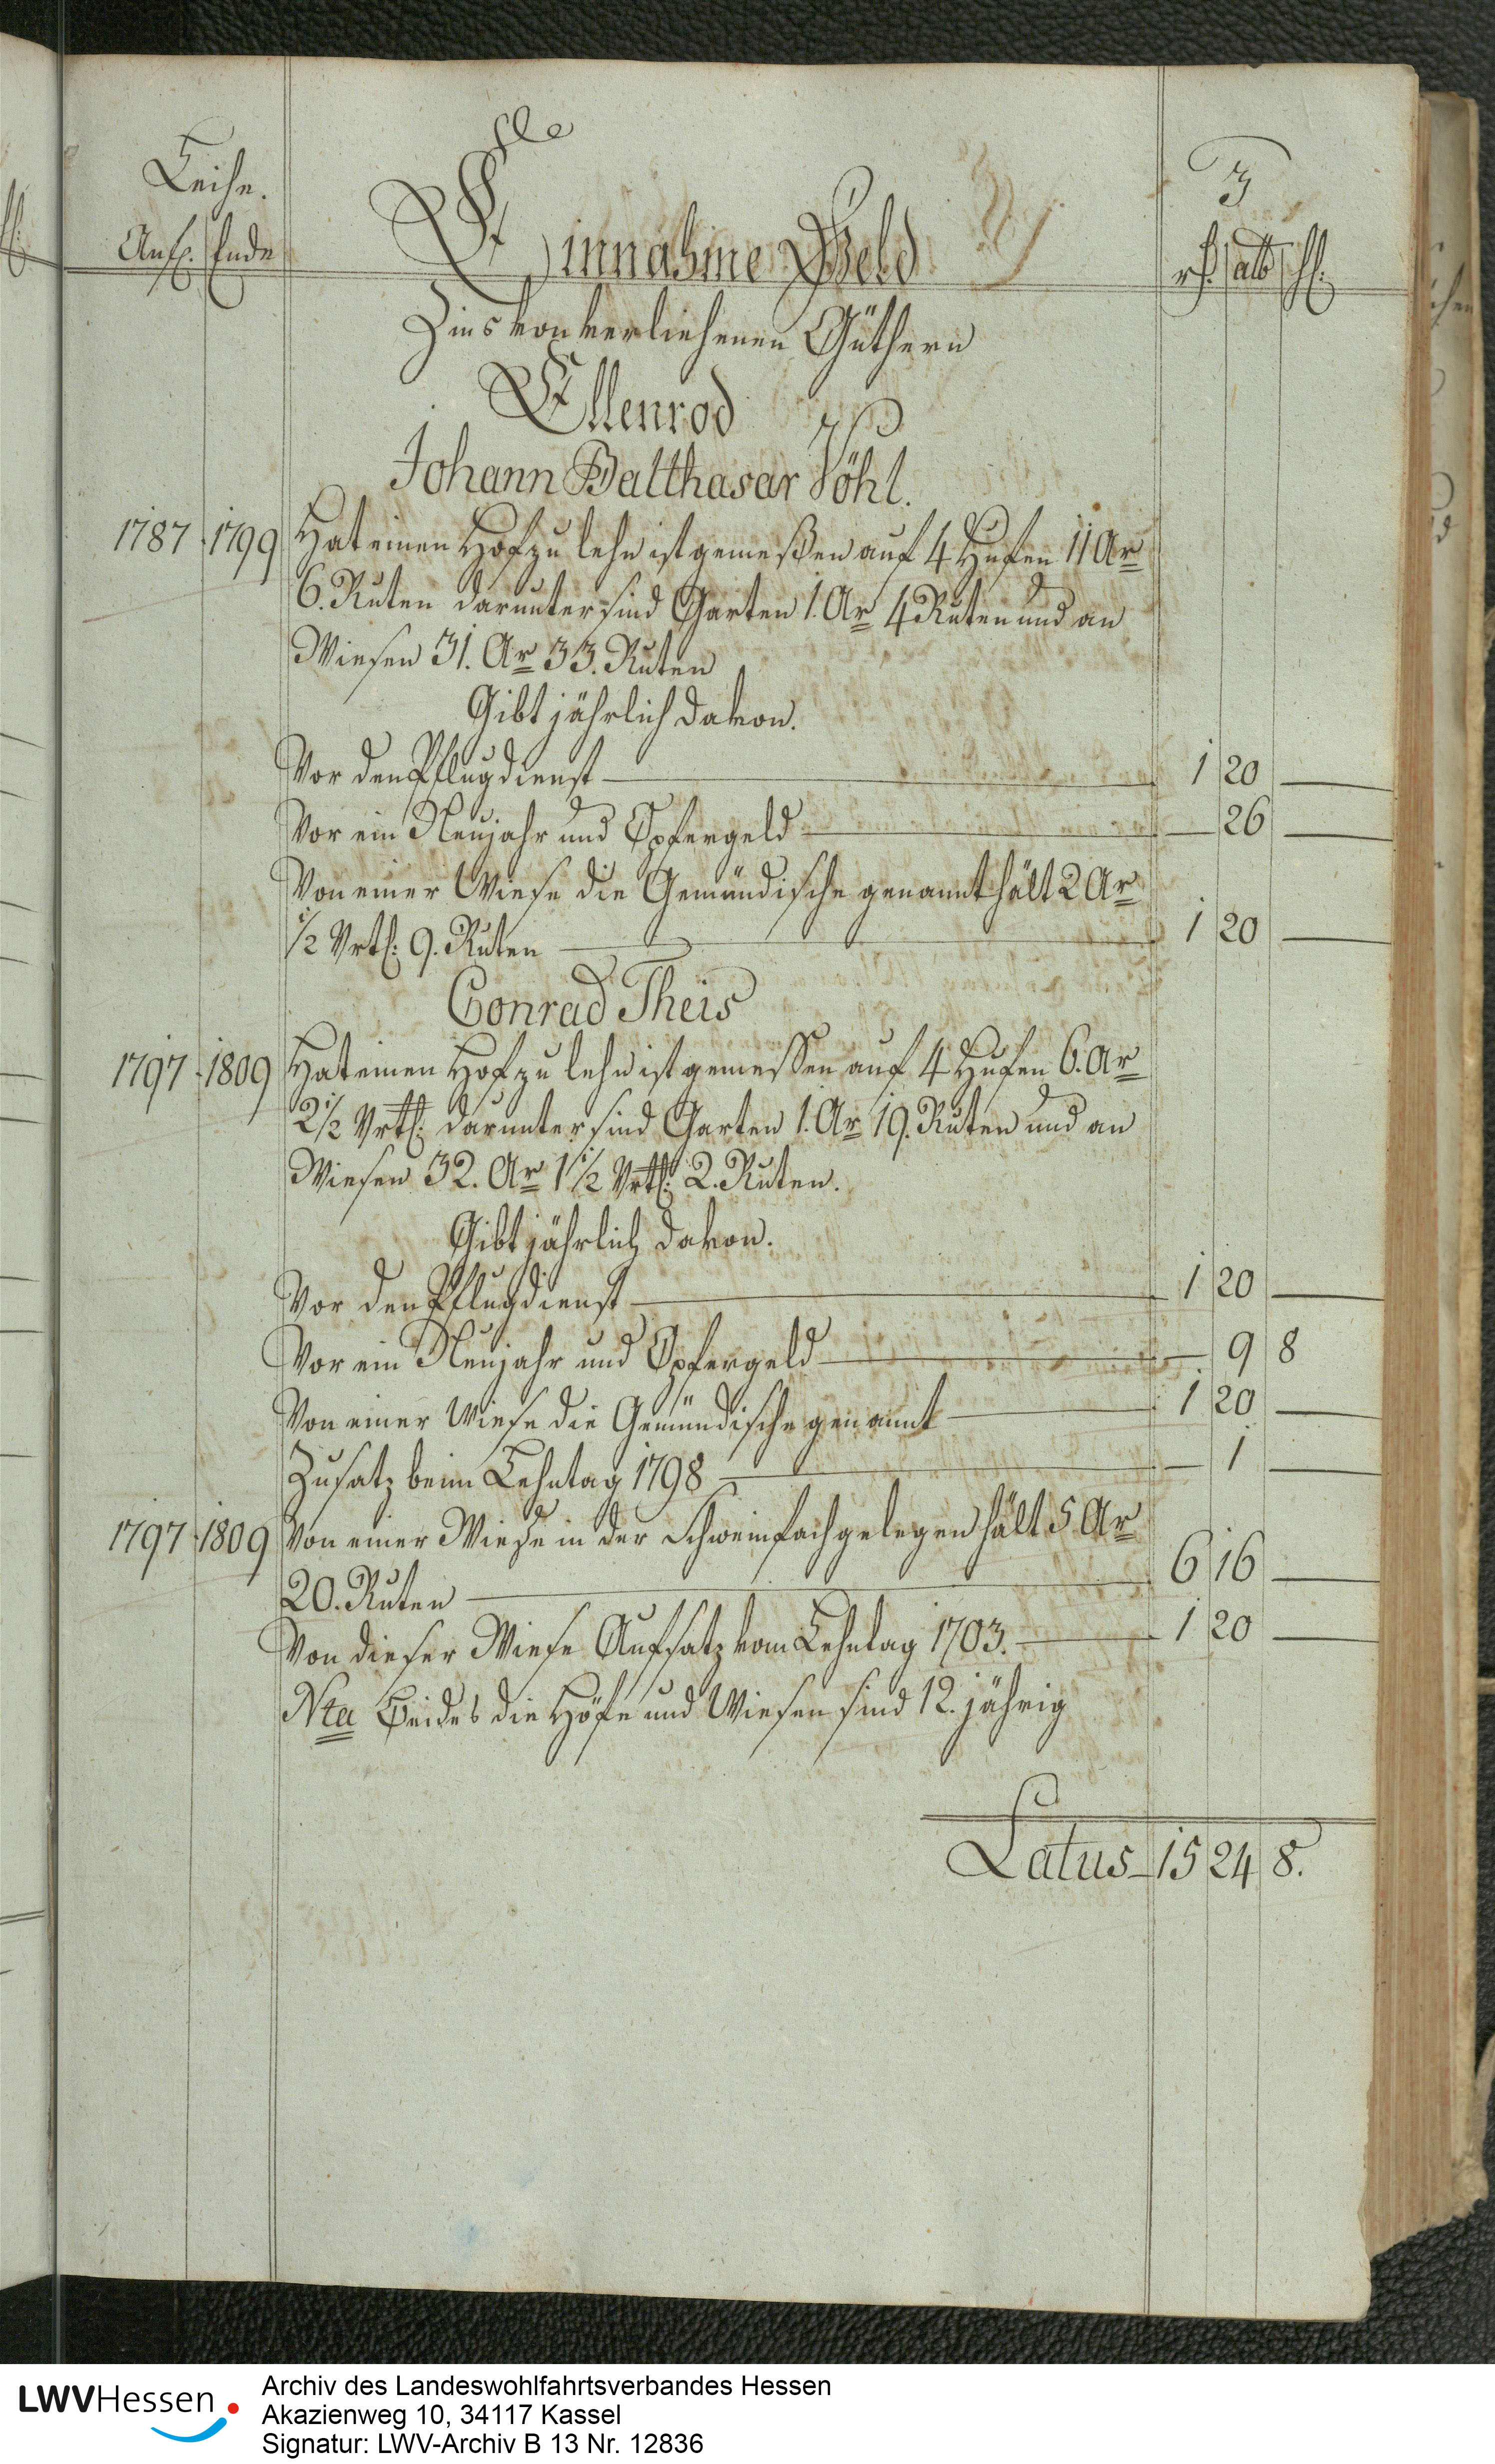 3
Leihe.
Anf. Ende
Einnahme Geld
rh. alb hl.
Zins von verliehenen Güthern
Ellenrod
Johann Balthasar Vöhl.
1787 1799 Hat einen Hof zu lehn ist gemeßen auf 4 Hufen 11 Ar
6. Ruten darunter sind Garten 1. Ar 4 Ruten und an
Wiesen 31. Ar 33. Ruten
Gibt jährlich davon.
Vor den Pflugdienst — 1 20 —
Vor ein Neujahr und Opfergeld — — 26 —
Von einer Wiese die Gemündische genannt hält 2 Ar
1/2 Vrtl: 9. Ruten — 1 20 —
Conrad Theis
1797 1809 Hat einen Hof zu lehn ist gemessen auf 4 Hufen 6. Ar
2 1/2 Vrtl: darunter sind Garten 1. Ar 19. Ruten und an
Wiesen 32. Ar 1 1/2 Vrtl: 2. Ruten.
Gibt jährlich davon.
Vor den Pflugdienst — 1 20 —
Vor ein Neujahr und Opfergeld — — 9 8
Von einer Wiese die Gemündische genannt — 1 20 —
Zusatz beim Lehntag 1798 — — 1 —
1797 1809 Von einer Wiese in der Schweinfach gelegen hält 5 Ar
20. Ruten — 6 16 —
Von dieser Wiese Aufsatz vom Lehntag 1703. — 1 20 —
Nta Beides die Höfe und Wiesen sind 12. jährig
Latus 15 24 8.
LWVHessen
Archiv des Landeswohlfahrtsverbandes Hessen
Akazienweg 10, 34117 Kassel
Signatur: LWV-Archiv B 13 Nr. 12836